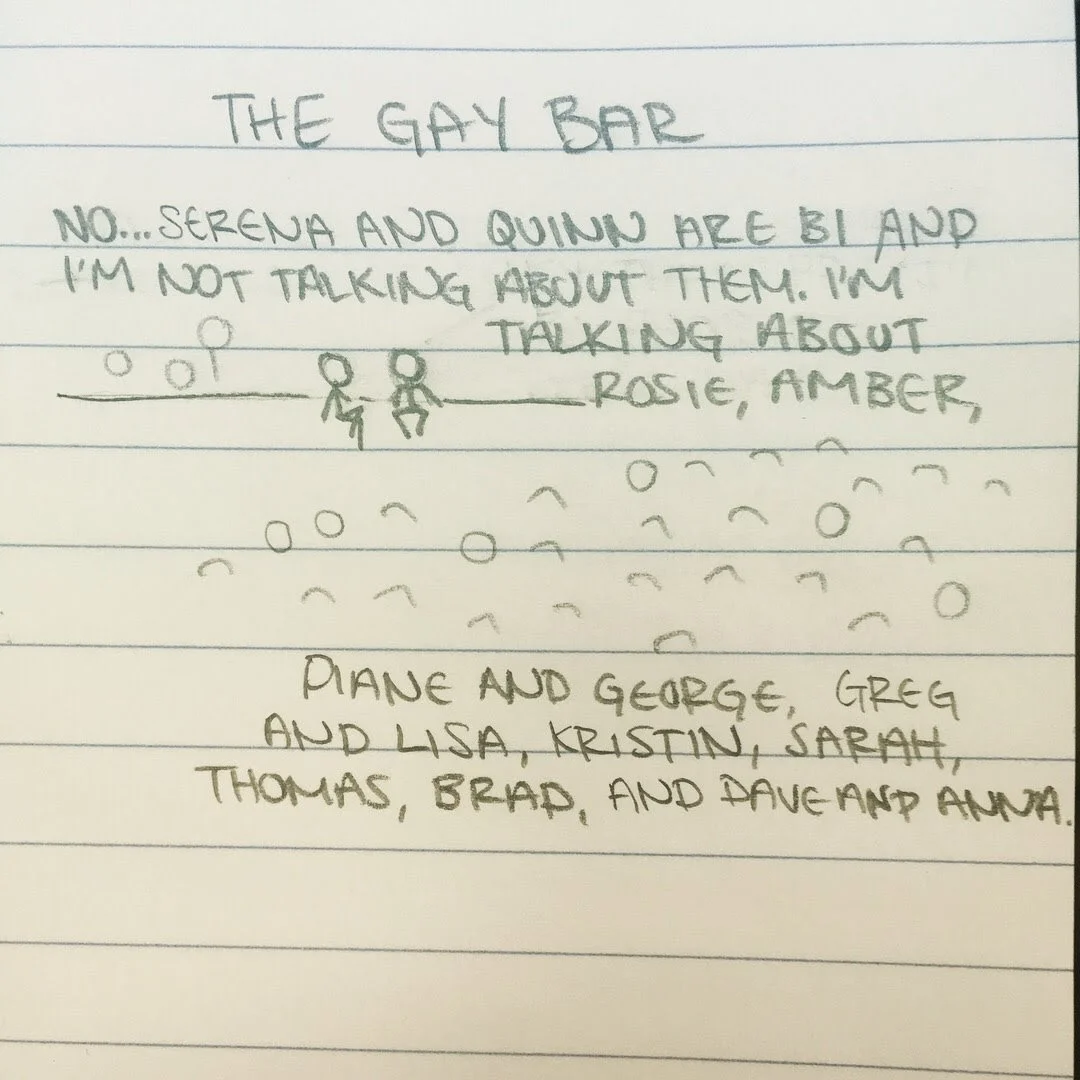 THE GAY BAR
NO... SERENA AND QUINN ARE BI AND
I'M NOT TALKING ABOUT THEM. I'M
TALKING ABOUT
ROSIE, AMBER,
DIANE AND GEORGE, GREG
AND LISA, KRISTIN, SARAH,
THOMAS, BRAD, AND DAVE AND ANNA.